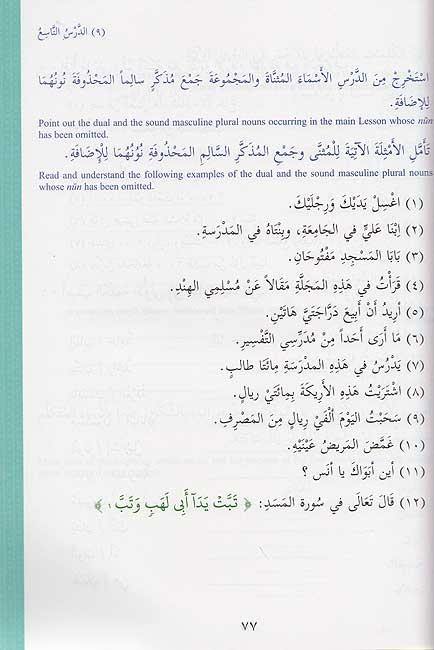 (٩) الدَّرْسُ التَّاسِعُ
اسْتَخْرِجْ مِنَ الدَّرْسِ الأَسْمَاءَ المُثَنَّاةَ وَالمَجْمُوعَةَ جَمْعَ مُذَكَّرٍ سالِماً المَحْذُوفَةَ نُونُهُمَا
لِلإضَافَةِ.
Point out the dual and the sound masculine plural nouns occurring in the main Lesson whose nūn
has been omitted.
تَأَمَّلِ الأَمْثِلَةَ الآتِيَةَ لِلْمُثَنَّى وجَمْعِ المُذَكَّرِ السَّالِمِ المَحْذُوفَةِ نُونُهُمَا لِلْإضَافَةِ.
Read and understand the following examples of the dual and the sound masculine plural nouns
whose nūn has been omitted.
(١) اغْسِلْ يَدَيْكَ وَرِجْلَيْكَ.
(٢) ابْنَا عَلِيٍّ في الجَامِعَةِ، وبِنْتَاهُ في المَدْرَسةِ.
(٣) بَابَا المَسْجِدِ مَفْتُوحَانِ.
(٤) قَرَأْتُ في هَذِهِ المَجَلَّةِ مَقَالاً عَنْ مُسْلِمِي الهِنْدِ.
(٥) أرِيدُ أنْ أبِيعَ دَرَّاجَتَيَّ هَاتَيْنِ.
(٦) مَا أرَى أحَداً مِنْ مُدَرِّسِي التَّفْسِيرِ.
(٧) يَدْرُسُ في هَذِهِ المدْرَسَةِ مِائتَا طالبٍ.
(٨) اشْتَرَيْتُ هَذِهِ الأرِيكَةَ بِمِائَتَيْ ريالٍ.
(٩) سَحَبْتُ اليَوْمَ ألْفَيْ رِيالٍ مِنَ المَصْرِفِ.
(١٠) غَمَّضَ المَرِيضُ عَيْنَيْهِ.
(١١) أين أبَوَاكَ يا أنَس ؟
(١٢) قَالَ تَعَالَى في سُورة المَسَدِ: ﴿ تَبَّتْ يَدَآ أَبِى لَهَبٍ وَتَبَّ ١ ﴾
٧٧